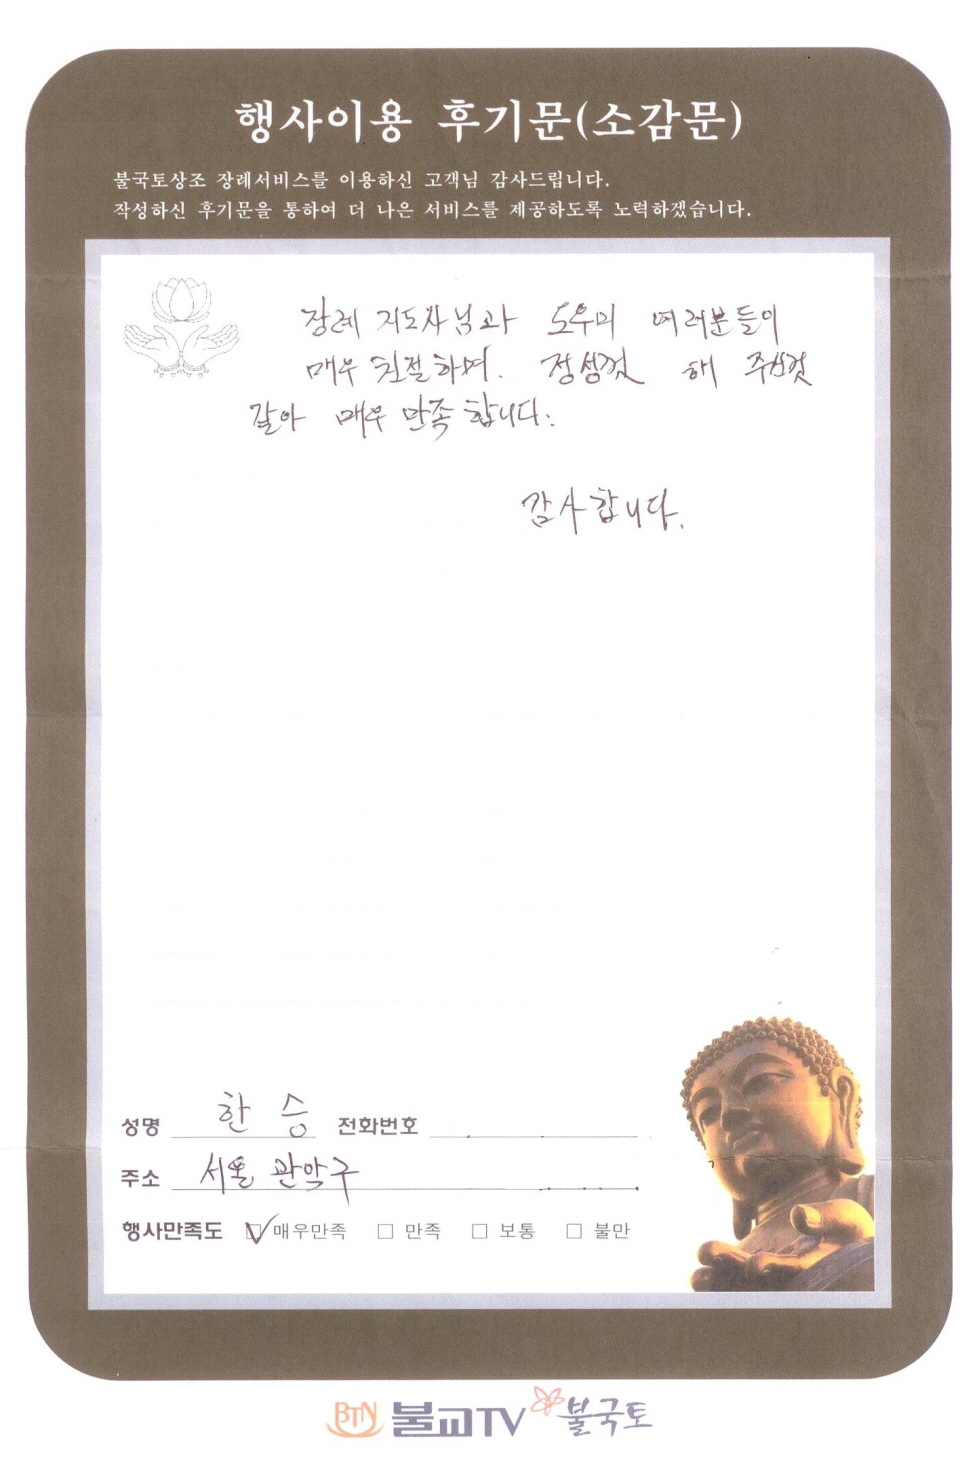 행사이용 후기문(소감문)
불국토상조 장례서비스를 이용하신 고객님 감사드립니다.
작성하신 후기문을 통하여 더 나은 서비스를 제공하도록 노력하겠습니다.
장례 지도사님과 도우미 여러분들이
매우 친절하며. 정성껏 해 주신것
같아 매우 만족 합니다.
감사합니다.
성명 한 승 전화번호
주소 서울 관악구
행사만족도 ☑ 매우만족 □ 만족 □ 보통 □ 불만
BTN 불교TV 불국토